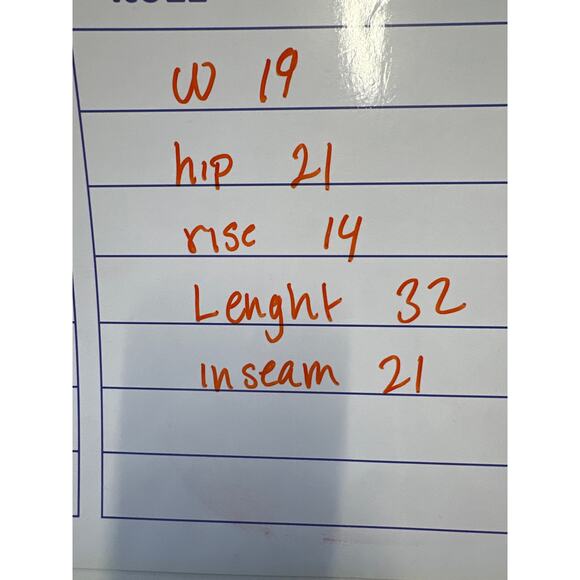 W 19
hip 21
rise 14
Lenght 32
inseam 21